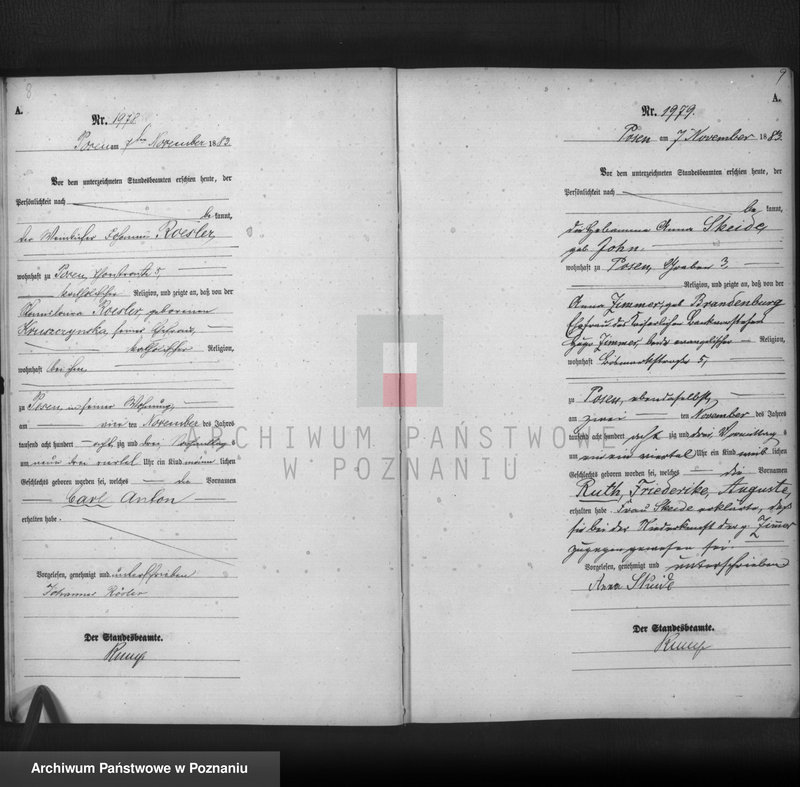 8
A.
Nr. 1978.
Posen am 7ten November 1883.
Vor dem unterzeichneten Standesbeamten erschien heute, der
Persönlichkeit nach
be kannt,
der Johann Roesler,
wohnhaft zu Posen, 5,
katholischer Religion, und zeigte an, daß von der
Roesler, geborenen
Kruszczynska, seiner Ehefrau,
katholischer Religion,
wohnhaft bei ihm,
zu Posen, in seiner Wohnung,
am vierten November des Jahres
tausend acht hundert acht zig und drei Vormittag s
um neun drei viertel Uhr ein Kind männ lichen
Geschlechts geboren worden sei, welches die Vornamen
Carl Anton
erhalten habe.
Vorgelesen, genehmigt und unterschrieben
Johannes Rösler
Der Standesbeamte.
9
A.
Nr. 1979.
Posen am 7 November 1883.
Vor dem unterzeichneten Standesbeamten erschien heute, der
Persönlichkeit nach
be kannt,
die Hebamme Anna Skeide,
geb. John
wohnhaft zu Posen, Graben 3,
Religion, und zeigte an, daß von der
Anna Zimmer, geb. Brandenburg
Ehefrau des Kaiserlichen
Hugo Zimmer, beide evangelischer Religion,
wohnhaft Bismarkstraße 5,
zu Posen, ebendaselbst,
am zwei ten November des Jahres
tausend acht hundert acht zig und drei Vormittag s
um ein viertel Uhr ein Kind weib lichen
Geschlechts geboren worden sei, welches die Vornamen
Ruth, Friederike, Auguste,
erhalten habe. Frau Skeide erklärte, daß
sie bei der Niederkunft der p. Zimmer
zugegen gewesen sei.
Vorgelesen, genehmigt und unterschrieben
Anna Skeide
Der Standesbeamte.
ARCHIWUM PAŃSTWOWE
W POZNANIU
Archiwum Państwowe w Poznaniu